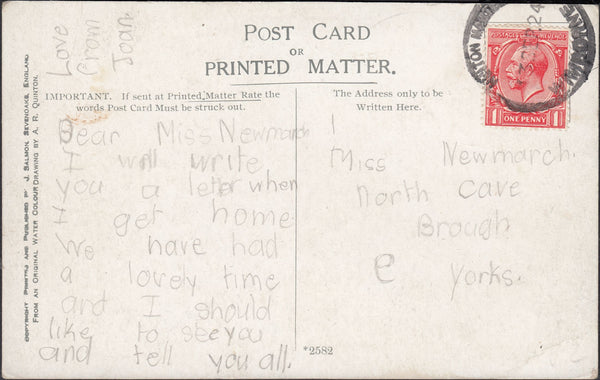 POST CARD
OR
PRINTED MATTER.
IMPORTANT. If sent at Printed Matter Rate the
words Post Card Must be struck out.
The Address only to be
Written Here.
Dear Miss Newmarch
I will write
you a letter when
I get home
We have had
a lovely time
and I should
like to see you
and tell you all.
Love
from
Joan.
Miss Newmarch.
North Cave
Brough
e Yorks.
POSTAGE REVENUE
ONE PENNY
1 1
24
COPYRIGHT PRINTED AND PUBLISHED BY J. SALMON, SEVENOAKS, ENGLAND
FROM AN ORIGINAL WATER COLOUR DRAWING BY A. R. QUINTON.
*2582